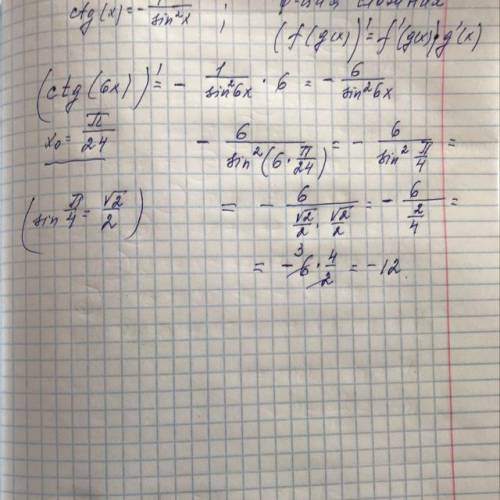 ctg(x) = - 1/sin²x ; ф-ция сложная
(f(g(x))' = f'(g(x))·g'(x)
(ctg(6x))' = - 1/sin²6x · 6 = - 6/sin²6x
x₀ = π/24 - 6/sin²(6·π/24) = - 6/sin² π/4 =
(sin π/4 = √2/2) = - 6/(√2/2 · √2/2) = - 6/(2/4) =
= - 6³ · 4/2 = -12.